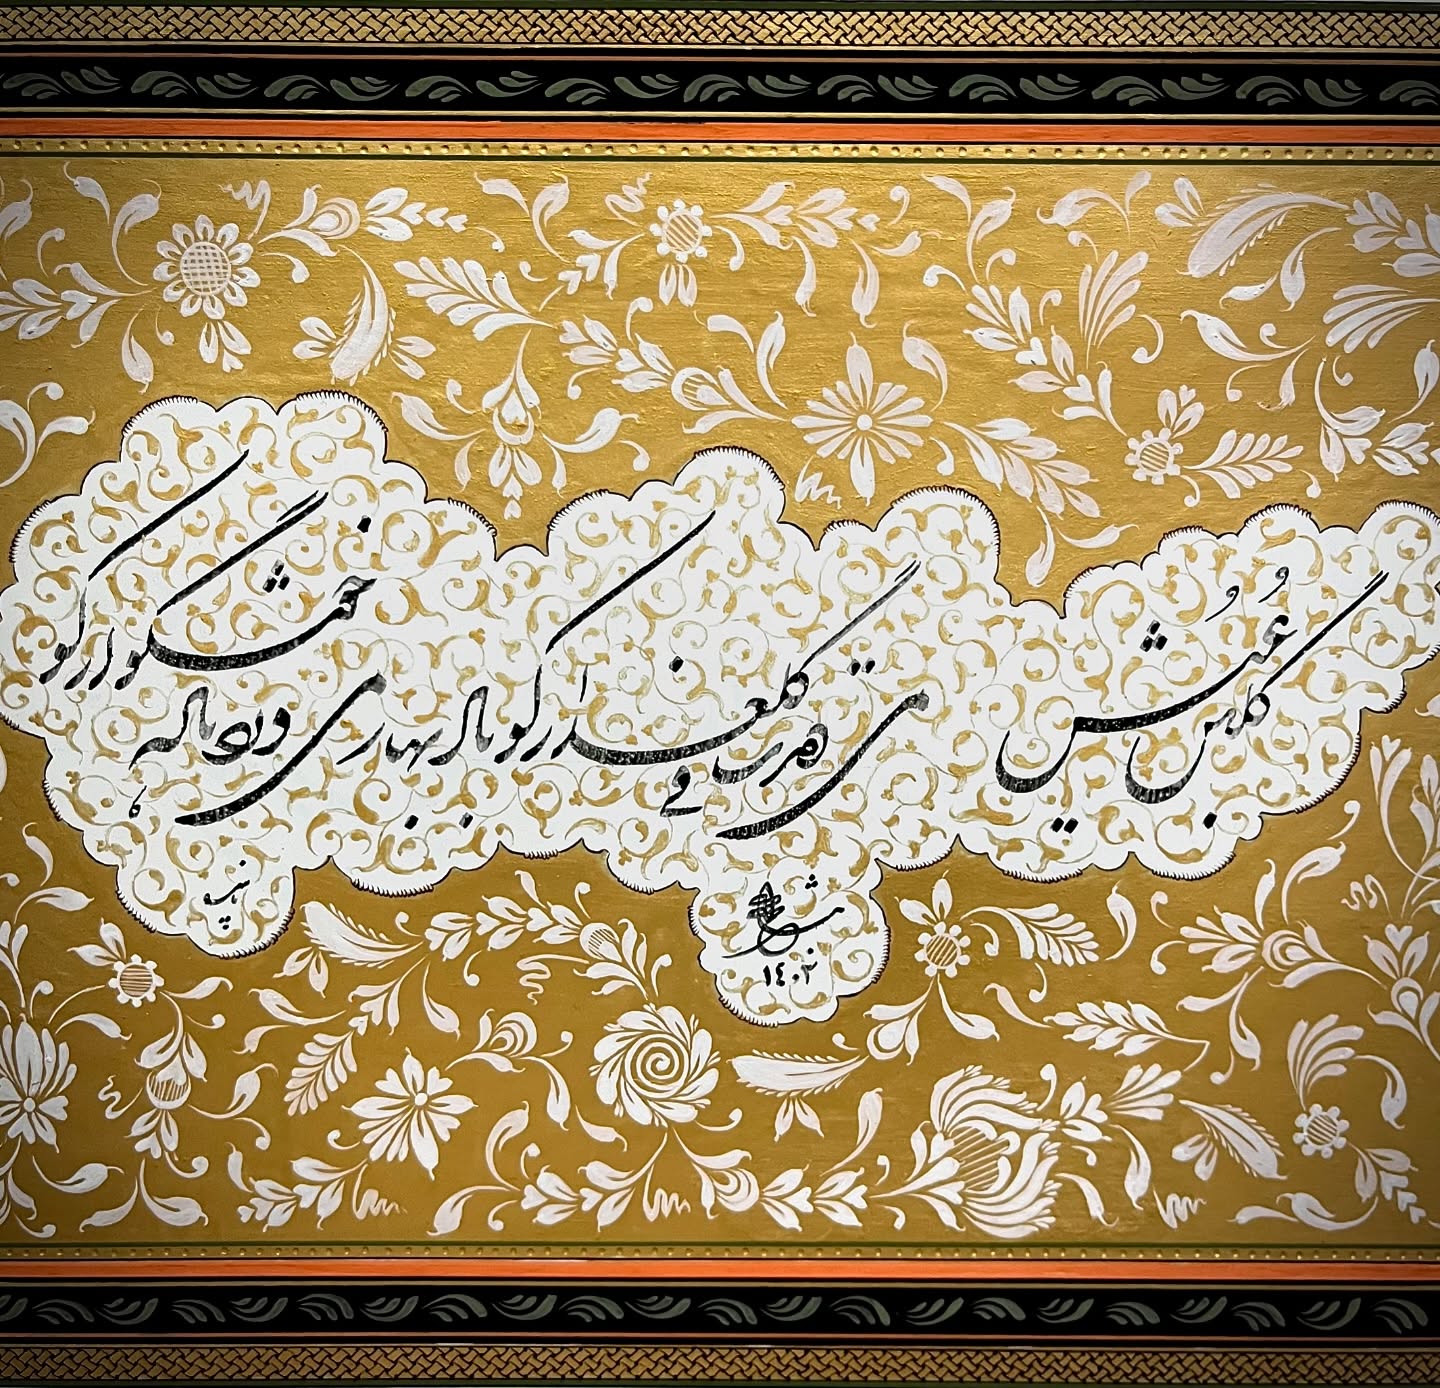 گلبن عیش می دمد ساقی گلعذار کو باد بهار می وزد باده خوشگوار کو
١٤٠٢